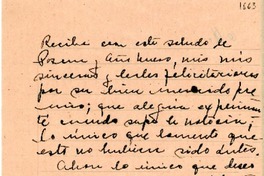 1663
Reciba con este saludo de
Pascua y Año nuevo, mis más
sinceras y leales felicitaciones
por su bien merecido pre
mio; que alegría experimen
té cuando supe la noticia;
lo único que lamento que
esto no hubiera sido antes.
Ahora lo único que deseo